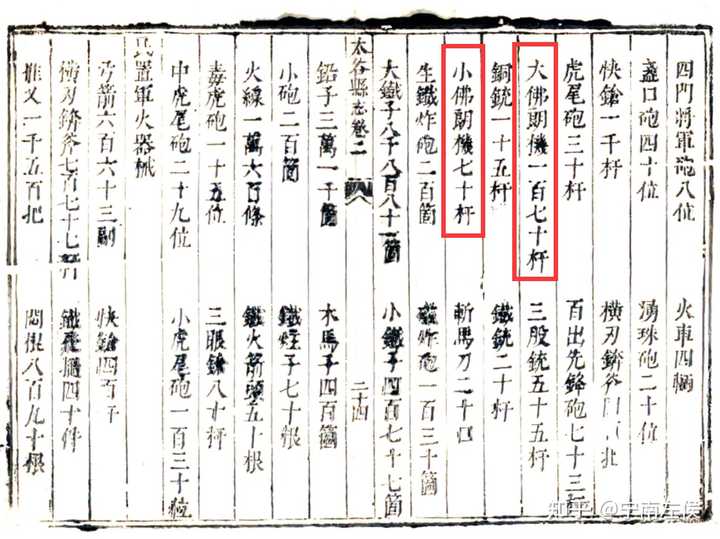 四門將軍砲八位　火車四輛
盞口砲四十位　湧珠砲二十位
快鎗一千杆　橫刃錛斧
虎尾砲三十杆　百出先鋒砲七十三
大佛朗機一百七十杆　三股銃五十五杆
銅銃一十五杆　鐵銃二十杆
小佛朗機七十杆　斬馬刀二十口
生鐵炸砲二百箇　磁炸砲一百三十箇
大鐵子八千八百八十一箇　小鐵子四百七十七箇
太谷縣志卷二　二十四
鉛子三萬一千箇　木馬子四百箇
小砲二百箇　鐵蛭子七十根
火線一萬六百條　鐵火箭頭五十根
毒虎砲一十五位　三眼鎗八十杆
中虎尾砲二十九位　小虎尾砲一百三十位
民置軍火器械
弓箭六百六十三副　快鎗四百杆
橫刃錛斧七百七十七杆　鐵飛四十件
推叉一千五百把　悶棍八百九十根
知乎 @宁南左侯